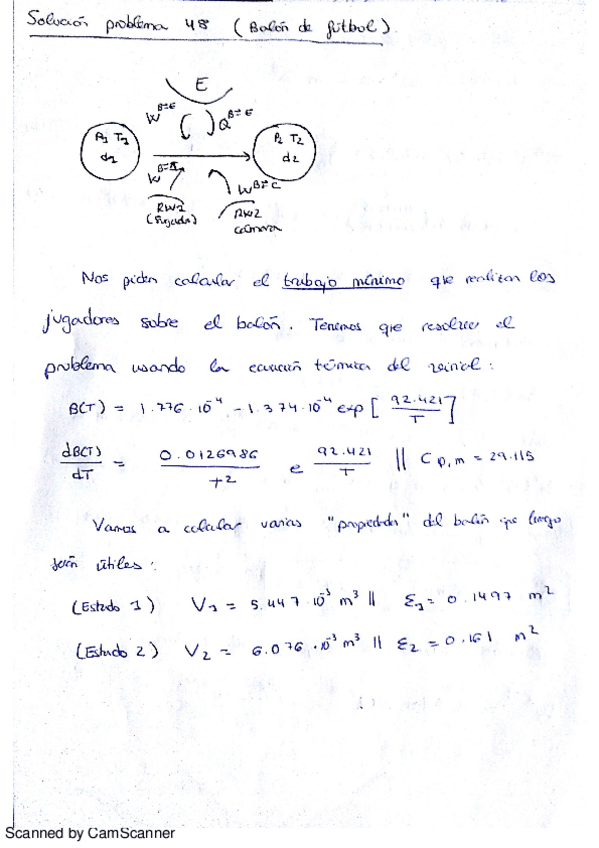 Solución problema 48 (Balón de fútbol)
E
W^B⇌E Q^B⇌E
P1 T1
d1
P2 T2
d2
W^B⇌
W^B⇌C
RW1
RW2
Nos piden calcular el trabajo mínimo que realizan los
jugadores sobre el balón. Tenemos que resolver el
problema usando la ecuación térmica del virial:
B(T) = 1.776·10^-4 - 1.374·10^-4 exp[92.421/T]
dB(T)/dT = 0.0126986/T^2 e 92.421/T || Cp,m = 29.115
Vamos a calcular varias "propiedades" del balón que luego
serán útiles:
(Estado 1) V1 = 5.447·10^-3 m^3 || ε1 = 0.1497 m^2
(Estado 2) V2 = 6.076·10^-3 m^3 || ε2 = 0.161 m^2
Scanned by CamScanner